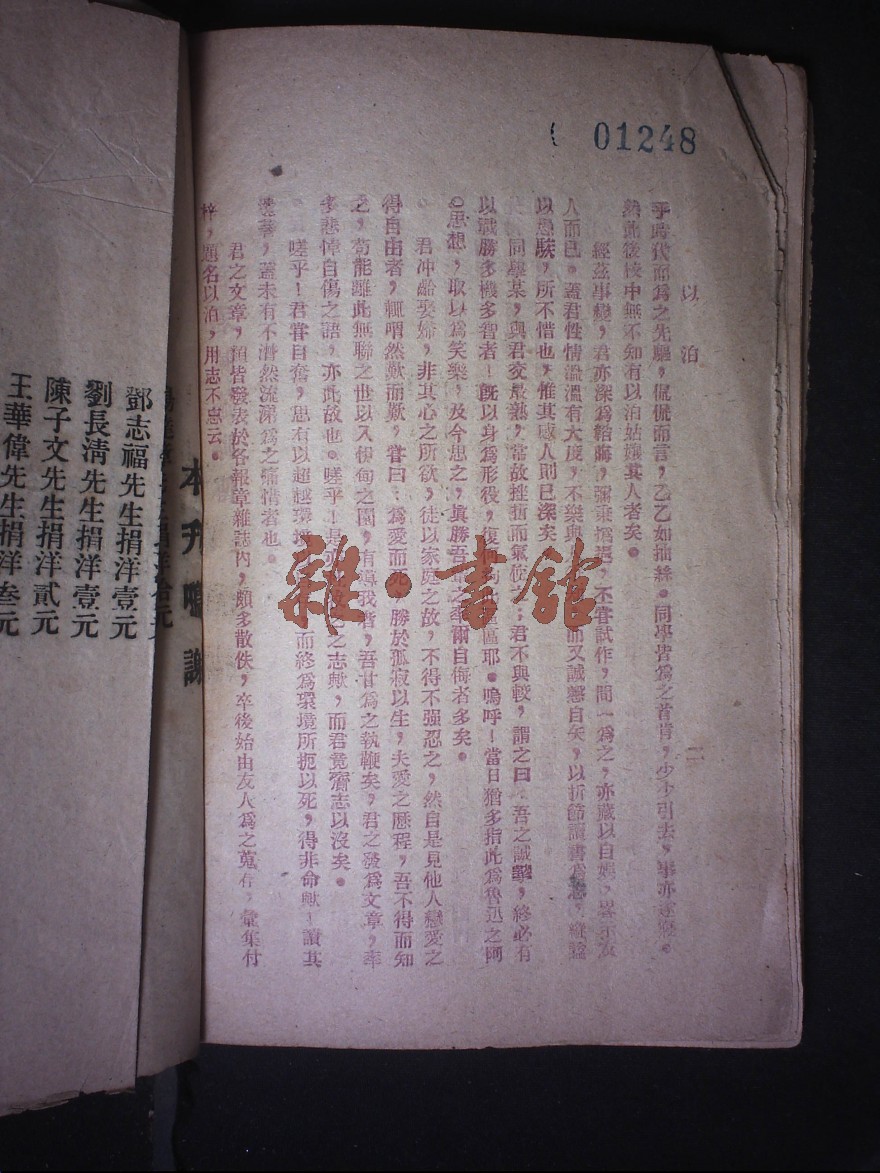 01248
以泊
二
乎時代而爲之先驅，侃侃而言，乙乙如抽絲。同學皆爲之首肯，少少引去，事亦遂寢。
然此後校中無不知有以泊姑孃其人者矣。
經茲事變，君亦深爲韜晦，
不嘗試作，間一爲之，亦藏以自娛，
人而已。蓋君性情溫溫有大度，不樂與
而又誠懇自矢，以折節讀書爲志，縱
以愚騃，所不惜也，惟其感人則已深矣
同學某，與君交最熟，常故挫
君不與較，謂之曰：吾之誠
終必有
以戰勝多機多智者！旣以身爲形役，復
區耶。嗚呼！當日猶多指此爲魯迅之阿
Q思想，取以爲笑樂，及今思之，眞勝吾
爾自侮者多矣。
君冲齡娶婦，非其心之所欲，徒以家庭之故，不得不強忍之，然自是見他人戀愛之
得自由者，輒喟然歎而歎，嘗曰：爲愛而死，勝於孤寂以生，夫愛之歷程，吾不得而知
之，苟能離此無聯之世以入伊甸之園，有導我者，吾甘爲之執鞭矣，君之發爲文章，率
多悲悼自傷之語，亦此故也。嗟乎！是亦
之志歟，而君竟齎志以沒矣。
嗟乎！君嘗自奮，思有以超越環境
而終爲環境所扼以死，得非命歟！讀其
遺著，蓋未有不潸然流涕爲之痛惜者也。
君之文章，預皆發表於各報章雜誌內，頗多散佚，卒後始由友人爲之蒐存，彙集付
梓，題名以泊，用志不忘云。
雜·書館
本刋鳴謝
鄧志福先生捐洋壹元
劉長清先生捐洋壹元
陳子文先生捐洋貳元
王華偉先生捐洋叁元